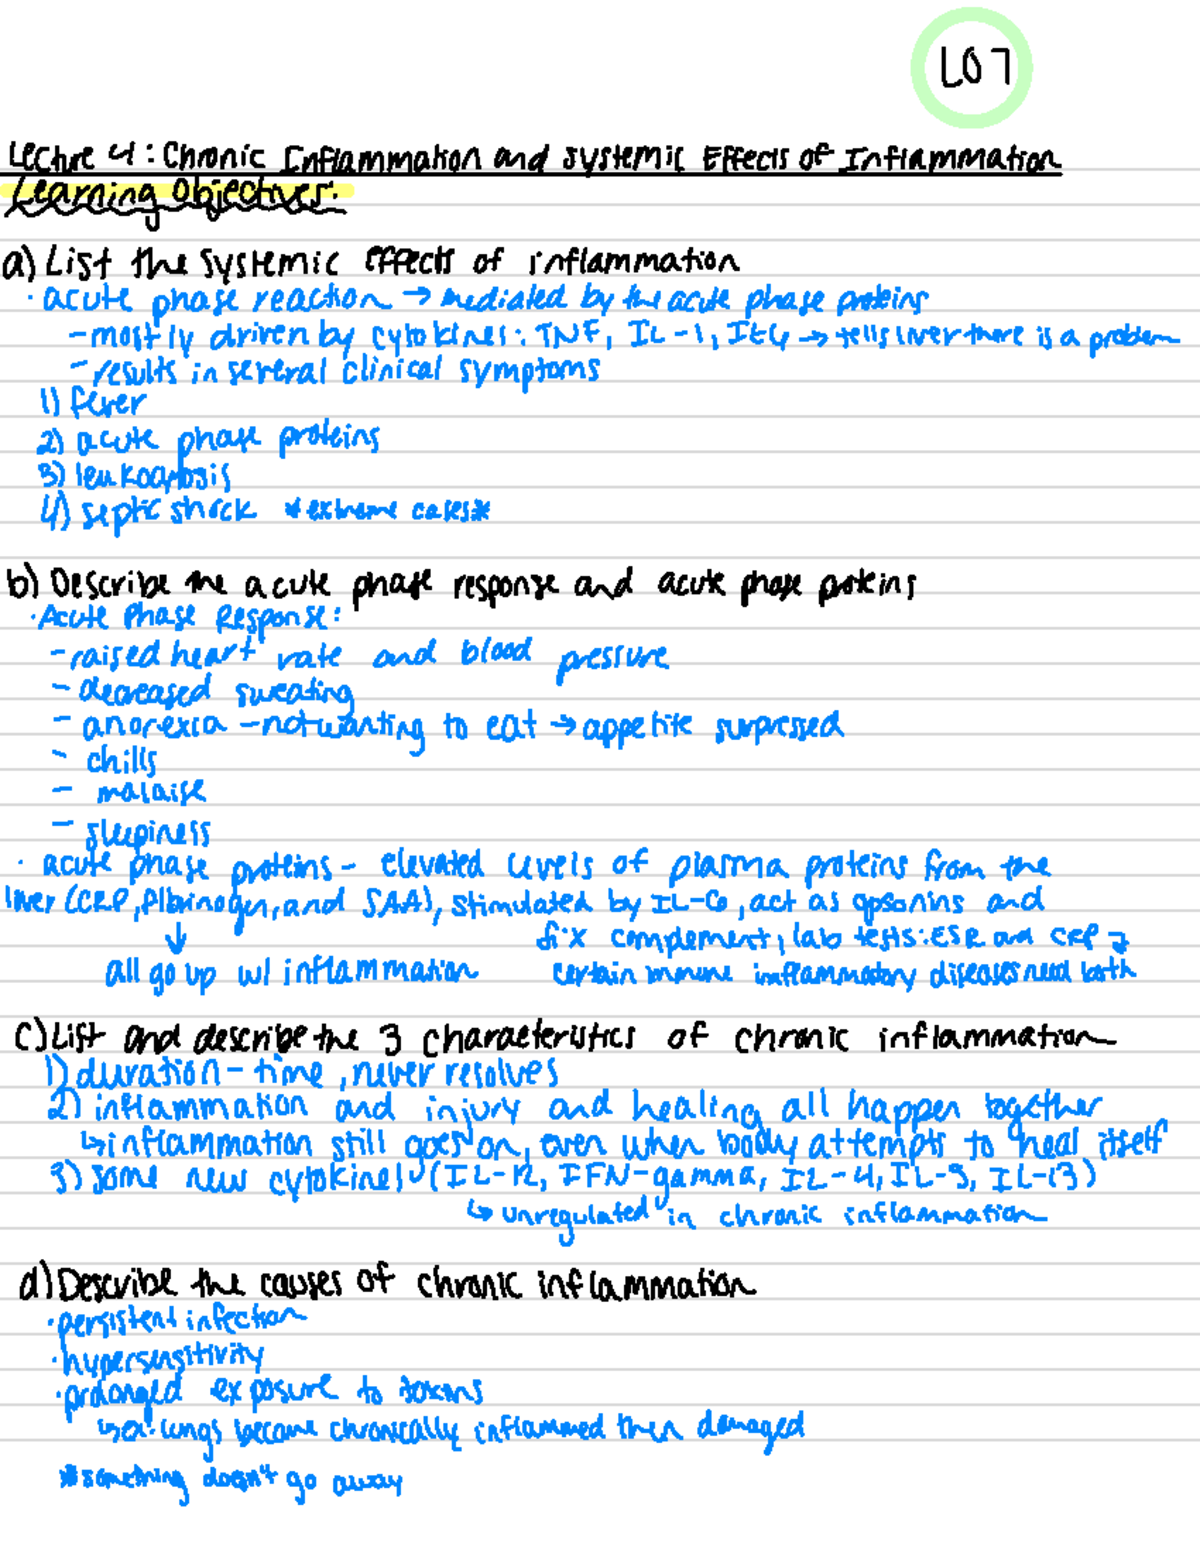 LO7
Lecture 4: Chronic Inflammation and Systemic Effects of Inflammation
Learning Objectives:
a) List the systemic effects of inflammation
· acute phase reaction → mediated by the acute phase proteins
- mostly driven by cytokines: TNF, IL-1, IL6 → tells liver there is a problem
- results in several clinical symptoms
1) fever
2) acute phase proteins
3) leukocytosis
4) septic shock *extreme cases*
b) Describe the acute phase response and acute phase proteins
· Acute Phase Response:
- raised heart rate and blood pressure
- decreased sweating
- anorexia - not wanting to eat → appetite surpressed
- chills
- malaise
- sleepiness
· acute phase proteins - elevated levels of plasma proteins from the
liver (CRP, Fibrinogen, and SAA), stimulated by IL-6, act as opsonins and
↓ fix complement, lab tests: ESR and CRP →
all go up w/ inflammation certain immune inflammatory diseases need both
c) List and describe the 3 characteristics of chronic inflammation
1) duration - time, never resolves
2) inflammation and injury and healing all happen together
↳ inflammation still goes on, even when body attempts to heal itself
3) some new cytokines (IL-12, IFN-gamma, IL-4, IL-5, IL-13)
↳ unregulated in chronic inflammation
d) Describe the causes of chronic inflammation
· persistent infection
· hypersensitivity
· prolonged exposure to toxins
↳ ex: lungs become chronically inflammed then damaged
*something doesn't go away